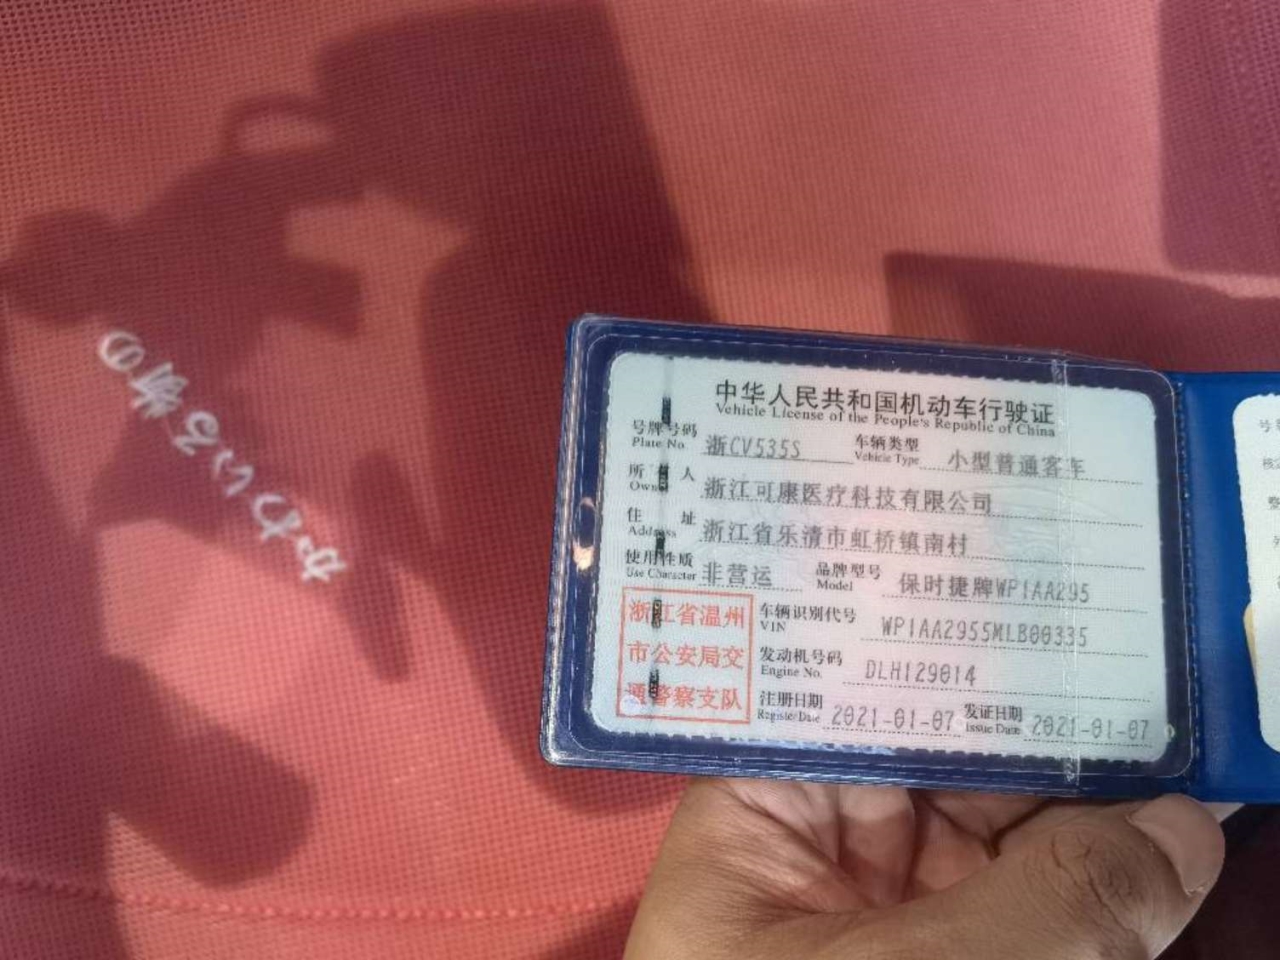 中华人民共和国机动车行驶证
Vehicle License of the People's Republic of China
号牌号码 浙CV535S 车辆类型 小型普通客车
Plate No. Vehicle Type
所有人 浙江可康医疗科技有限公司
Owner
住址 浙江省乐清市虹桥镇南村
Address
使用性质 非营运 品牌型号 保时捷牌WP1AA295
Use Character Model
浙江省温州
市公安局交
通警察支队
车辆识别代号 WP1AA2955MLB00335
VIN
发动机号码 DLH129014
Engine No.
注册日期 2021-01-07 发证日期 2021-01-07
Register Date Issue Date
号
核
整
外